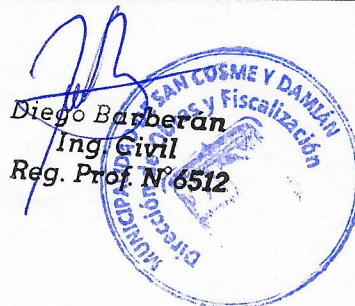 Diego Barberán
Ing. Civil
Reg. Prof. N° 6512
MUNICIPALIDAD DE SAN COSME Y DAMIÁN
Dirección de Obras y Fiscalización